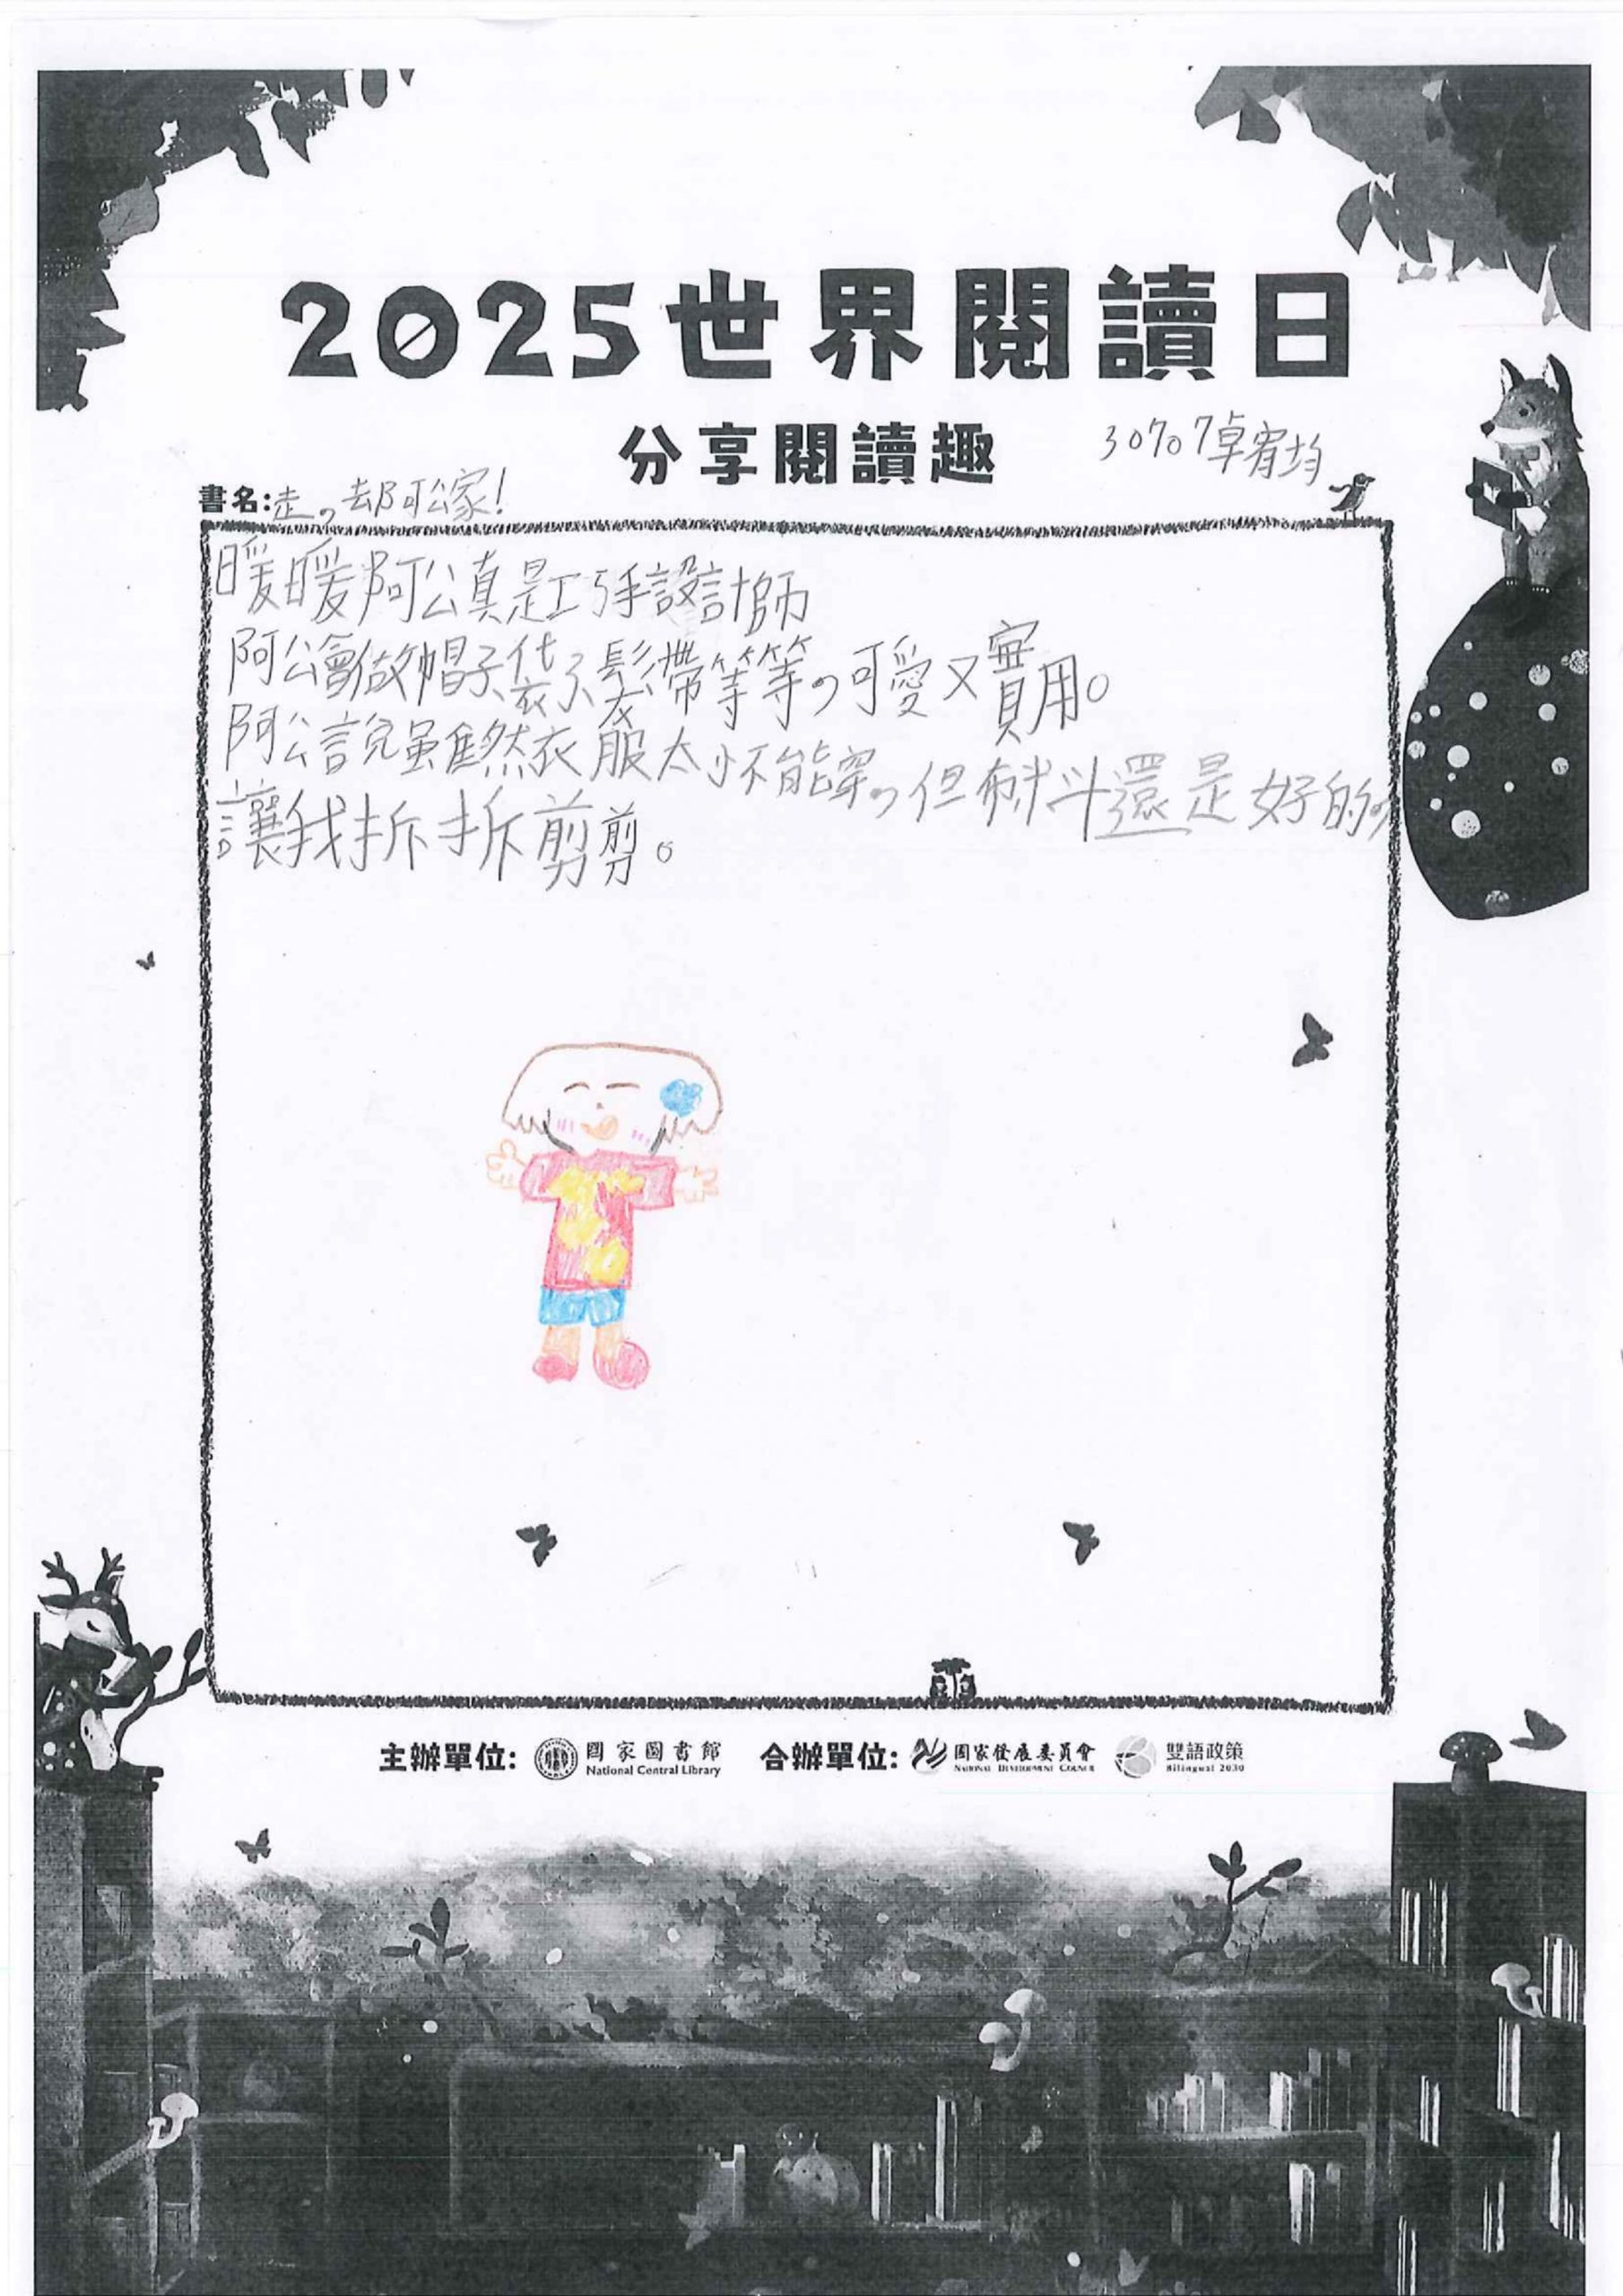 2025世界閱讀日
分享閱讀趣
30707卓宥均
書名:走,去阿公家!
暖暖阿公真是巧手設計師
阿公會做帽子袋子髮帶等等,可愛又實用。
阿公說雖然衣服太小不能穿,但布料還是好的,
讓我拆拆剪剪。
主辦單位: 國家圖書館 National Central Library 合辦單位: 國家發展委員會 National Development Council 雙語政策 Bilingual 2030